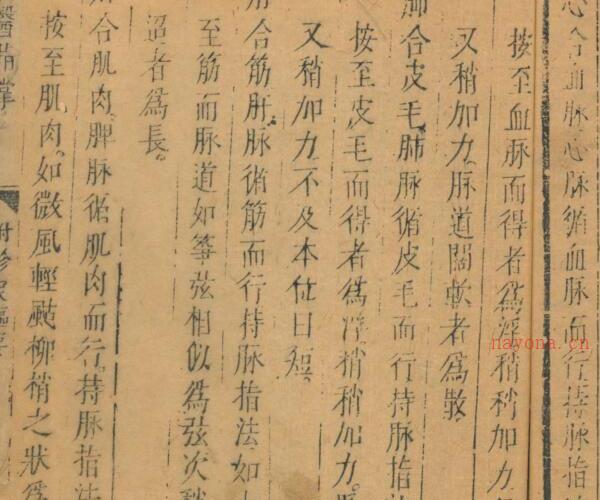 心合血脉心脉循血脉而行持脉指
按至血脉而得者爲浮稍稍加力
又稍加力脉道闊軟者爲散
合皮毛肺脉循皮毛而行持脉指
按至皮毛而得者爲浮稍稍加力
又稍加力不及本位曰短
合筋肝脉循筋而行持脉指法如
至筋而脉道如箏弦相似爲弦次
迢者爲長
合肌肉脾脉循肌肉而行持脉指法
按至肌肉如微風輕颭柳梢之狀爲
醫指掌
附診家樞要
nayona.cn